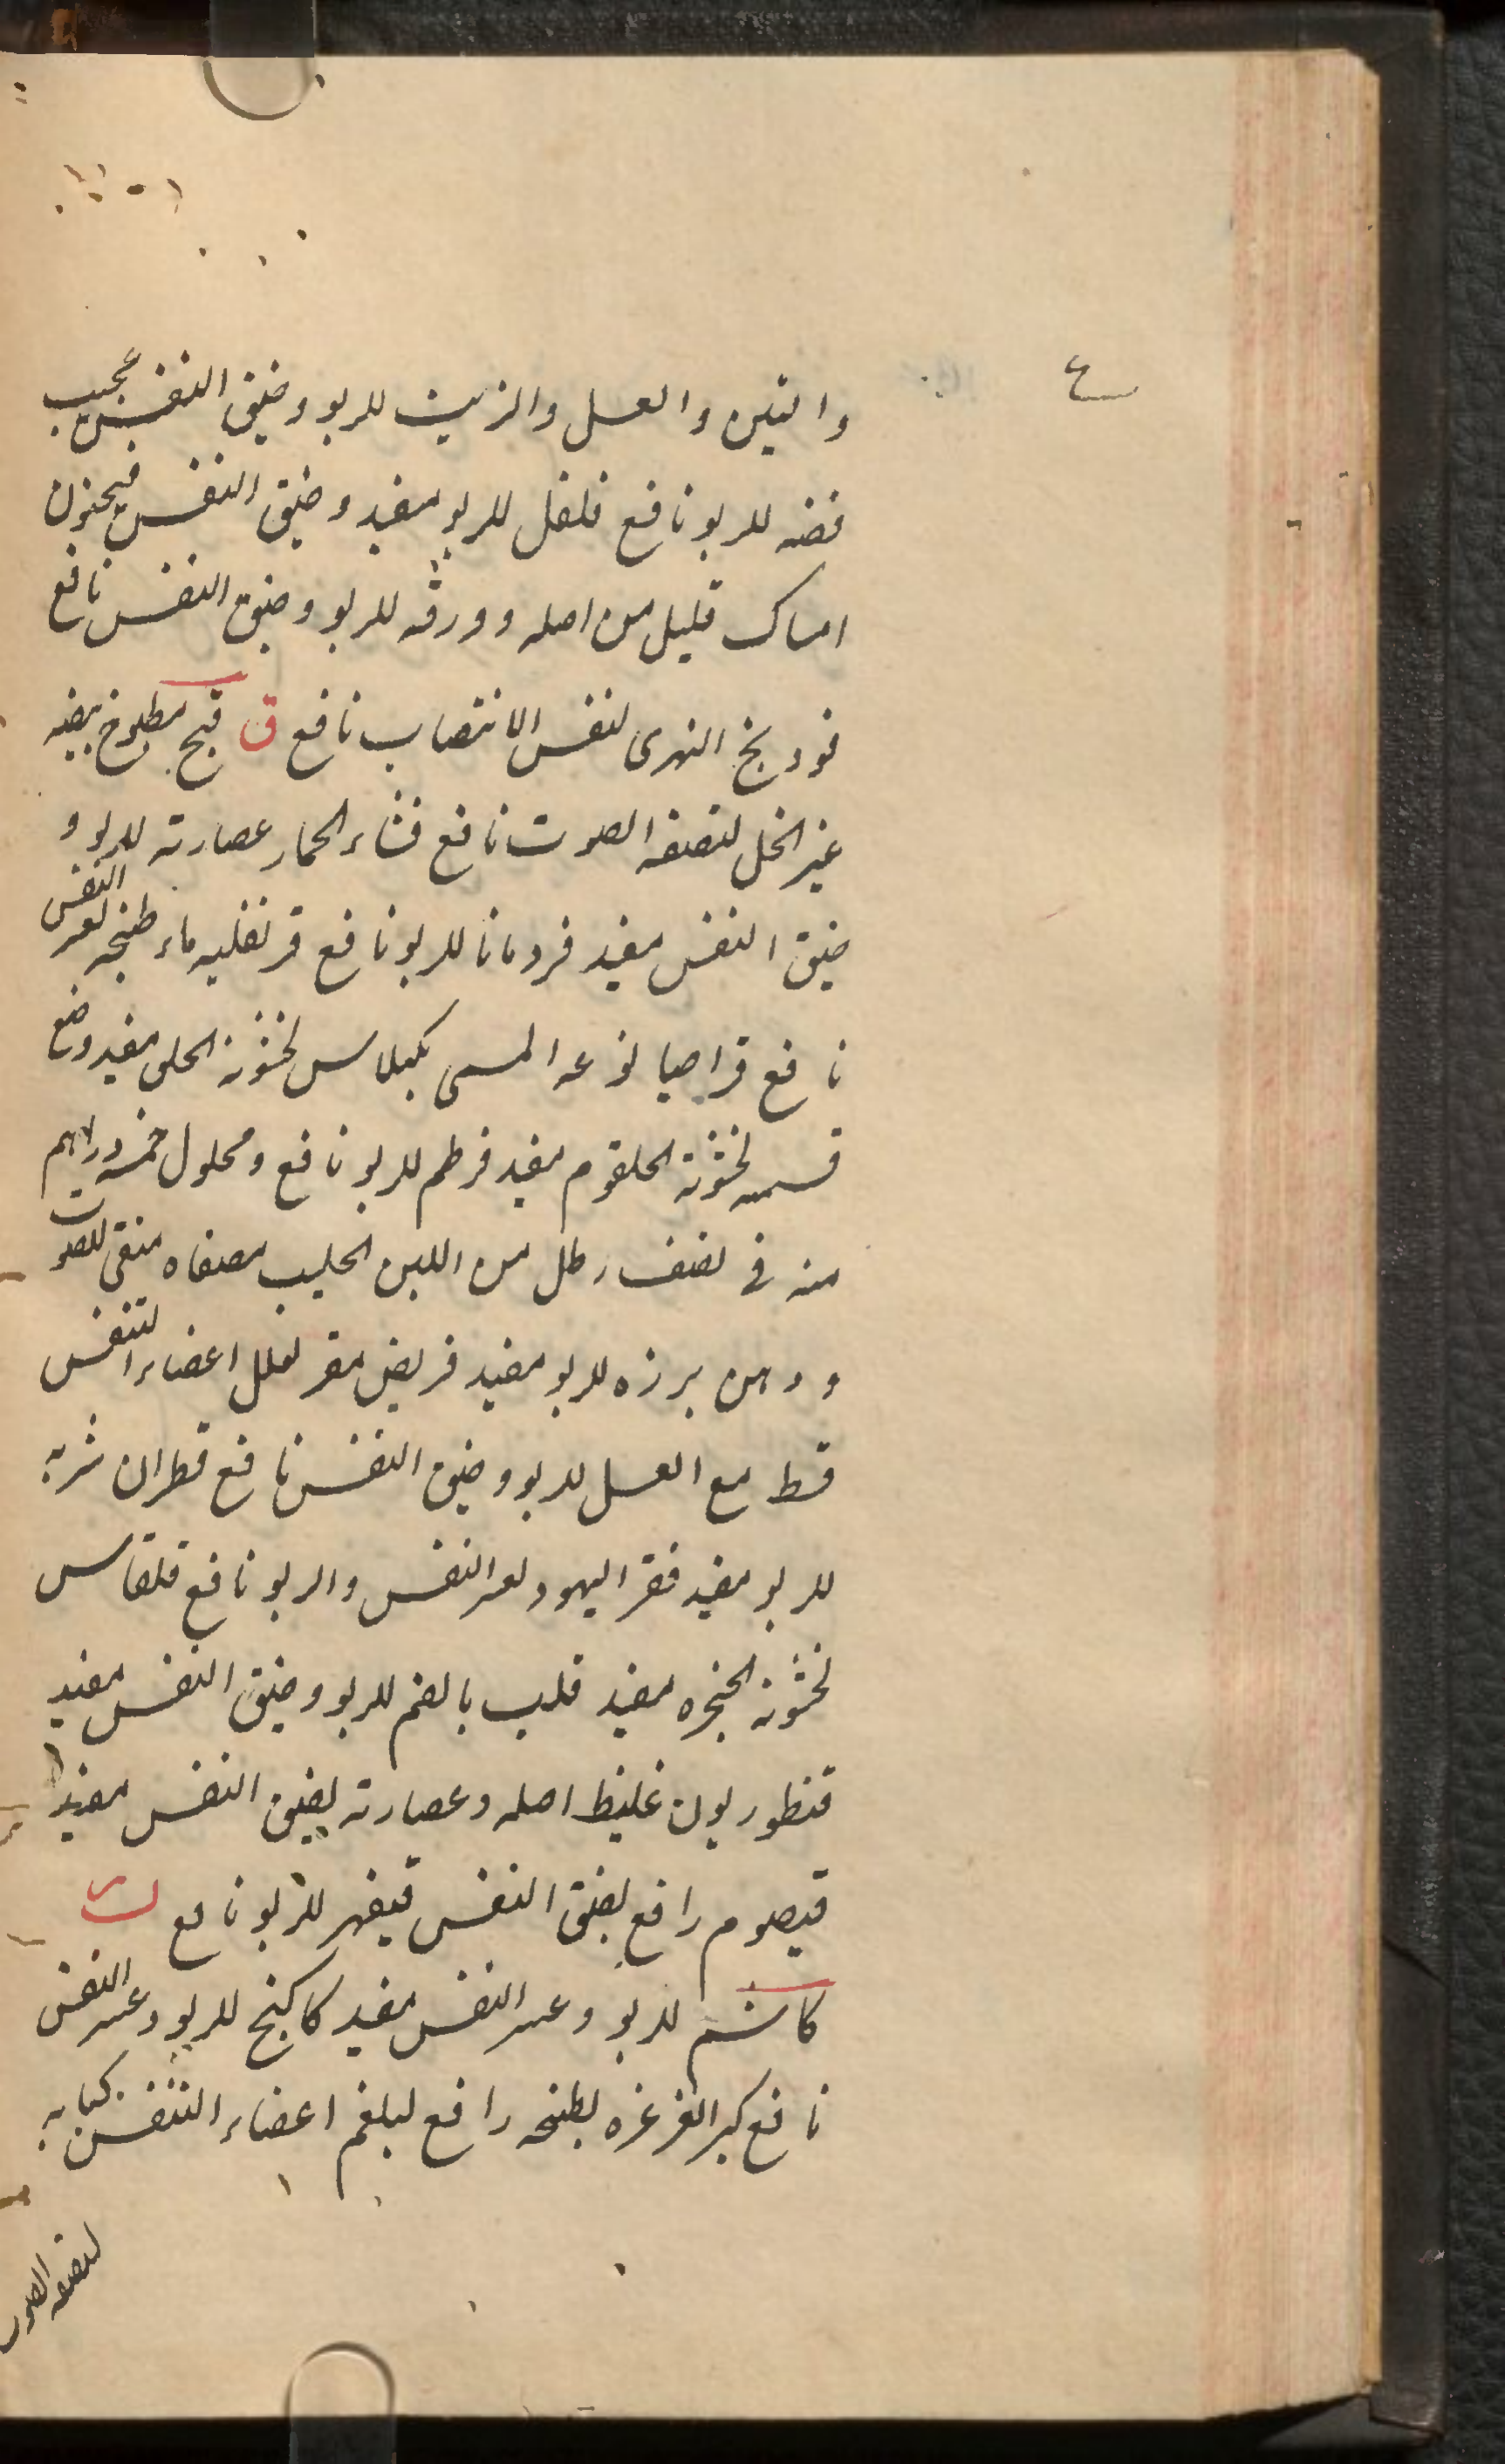 ع
والتين والعسل والزيت للربو وضيق النفس عجيب
فضه للربو نافع فلفل للربو مفيد وضيق النفس فيجنون
امساك قليل من اصله وورقه للربو وضيق النفس نافع
فودنج النهرى لنفس الانتصاب نافع ق قبج مطبوخ بيضه
غير الخل لتصفه الصوت نافع قثاء الحمار عصارته للربو و
ضيق النفس مفيد قردمانا للربو نافع قرنفليه ماء طبخه لعسر النفس
نافع قراصيا نوعه المسمى بكيلاس لخشونة الحلق مفيد وضع
قسمه لخشونة الحلقوم مفيد قرطم للربو نافع ومحلول خمسه دراهم
منه فى نصف رطل من اللبن الحليب مصفاه منقى للصوت
ودهن بزره للربو مفيد قريض مضر لعلل اعضاء التنفس
قسط مع العسل للربو وضيق النفس نافع قطران شربه
للربو مفيد قفر اليهود لعسر النفس والربو نافع قلقاس
لخشونة الحنجره مفيد قلب بالضم للربو وضيق النفس مفيد
قنطوريون غليظ اصله وعصارته لضيق النفس مفيد
قيصوم رافع لضيق النفس قيفهر للربو نافع ك
كاشم للربو وعسر النفس مفيد كاكنج للربو وعسر النفس
نافع كبر الغرغره بطبخه رافع لبلغم اعضاء التنفس كبابه
لتصفه الصوت